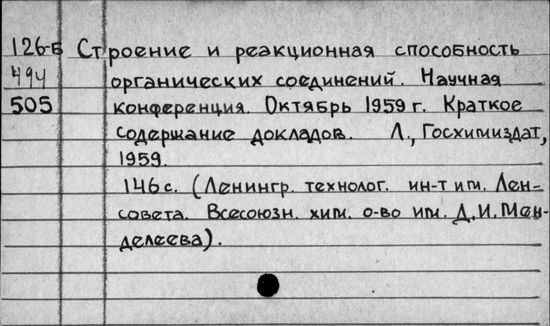 126-Б Строение и реакционная способность
494 органических соединений. Научная
505 конференция. Октябрь 1959 г. Краткое
содержание докладов. Л., Госхимиздат,
1959.
146 с. (Ленингр. технолог. ин-т им. Лен-
совета. Всесоюзн. хим. о-во им. Д.И. Мен-
делеева).